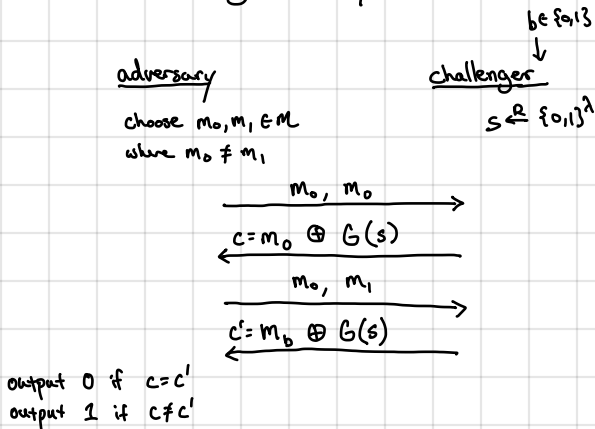 b ∈ {0,1}
adversary
challenger
choose m₀, m₁ ∈ M
where m₀ ≠ m₁
s ←ᴿ {0,1}^λ
m₀, m₀
c = m₀ ⊕ G(s)
m₀, m₁
c' = m_b ⊕ G(s)
output 0 if c = c'
output 1 if c ≠ c'